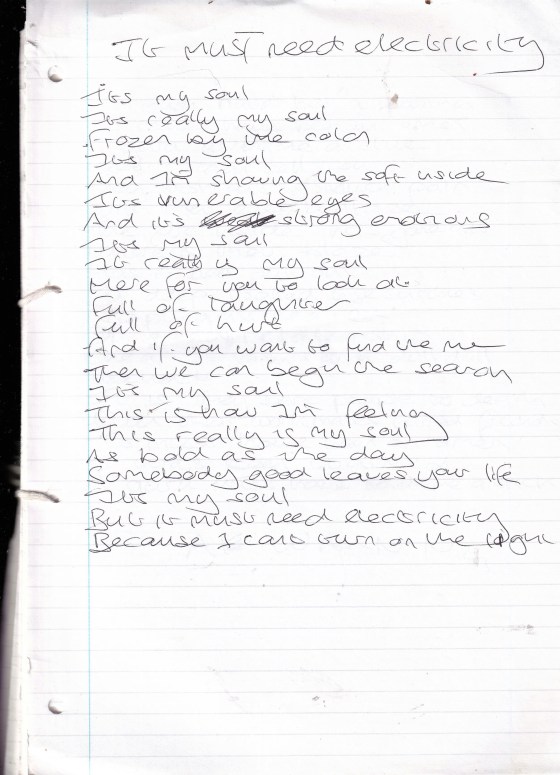 It must need electricity
Its my soul
Its really my soul
Frozen by the cold
Its my soul
And Im showing the soft inside
Its vunerable eyes
And its strong emotions
Its my soul
It really is my soul
Here for you to look at
Full of laughter
Full of hurt
And if you want to find the me
Then we can begin the search
Its my soul
This is how Im feeling
This really is my soul
As bold as the day
Somebody good leaves your life
Its my soul
But it must need electricity
Because I cant turn on the light